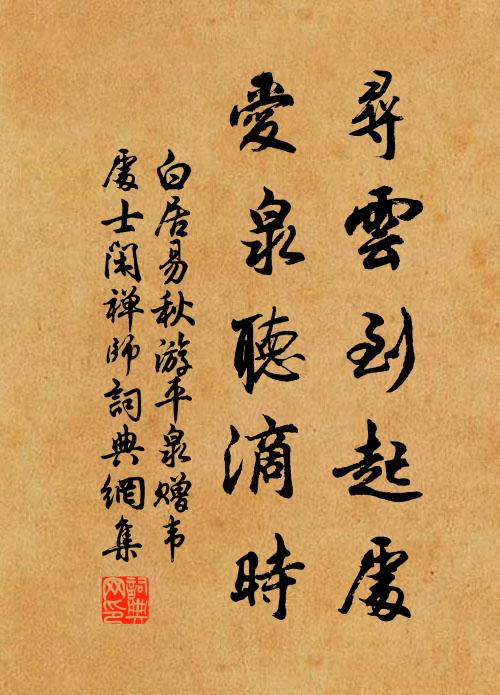 尋雲到起處
愛泉聽滴時
白居易秋游平泉贈韦
處士閑禅師詞典網集
詞典网印